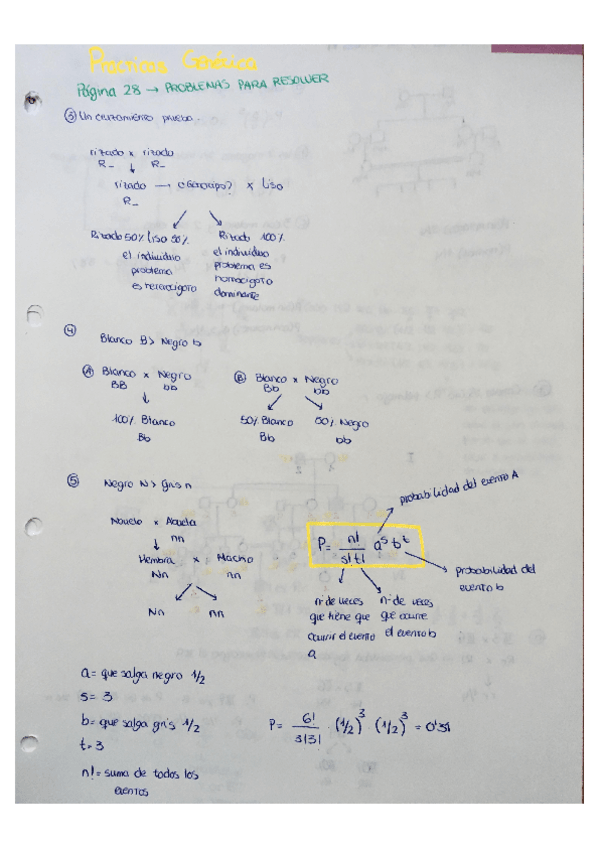 Prácticos Genética
Página 28 → PROBLEMAS PARA RESOLVER
③ Un cruzamiento prueba.
rizado x rizado
R_ ↓ R_
rizado → ¿Genotipo? x liso
R_
Rizado 50% liso 50%
el individuo
problema
es heterocigoto
Rizado 100%
el individuo
problema es
homocigoto
dominante
④
Blanco B > Negro b
Ⓐ Blanco x Negro
BB bb
↓
100% Blanco
Bb
Ⓑ Blanco x Negro
Bb bb
50% Blanco 50% Negro
Bb bb
⑤ Negro N > gris n
Abuelo x Abuela
nn
Hembra x Macho
Nn nn
Nn nn
P = n!/s!t! a^s b^t
probabilidad del evento A
probabilidad del
evento b
nº de veces
que tiene que
ocurrir el evento
a
nº de veces
que ocurre
el evento b
a = que salga negro 1/2
s = 3
b = que salga gris 1/2
t = 3
n! = suma de todos los
eventos
P = 6!/3!3! · (1/2)^3 · (1/2)^3 = 0'31